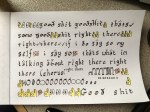 good shit goodshit thats
some good shit right there
right there if i do say so my
self i say so thats what im
talking about right there right
there (chorus:
Good shit